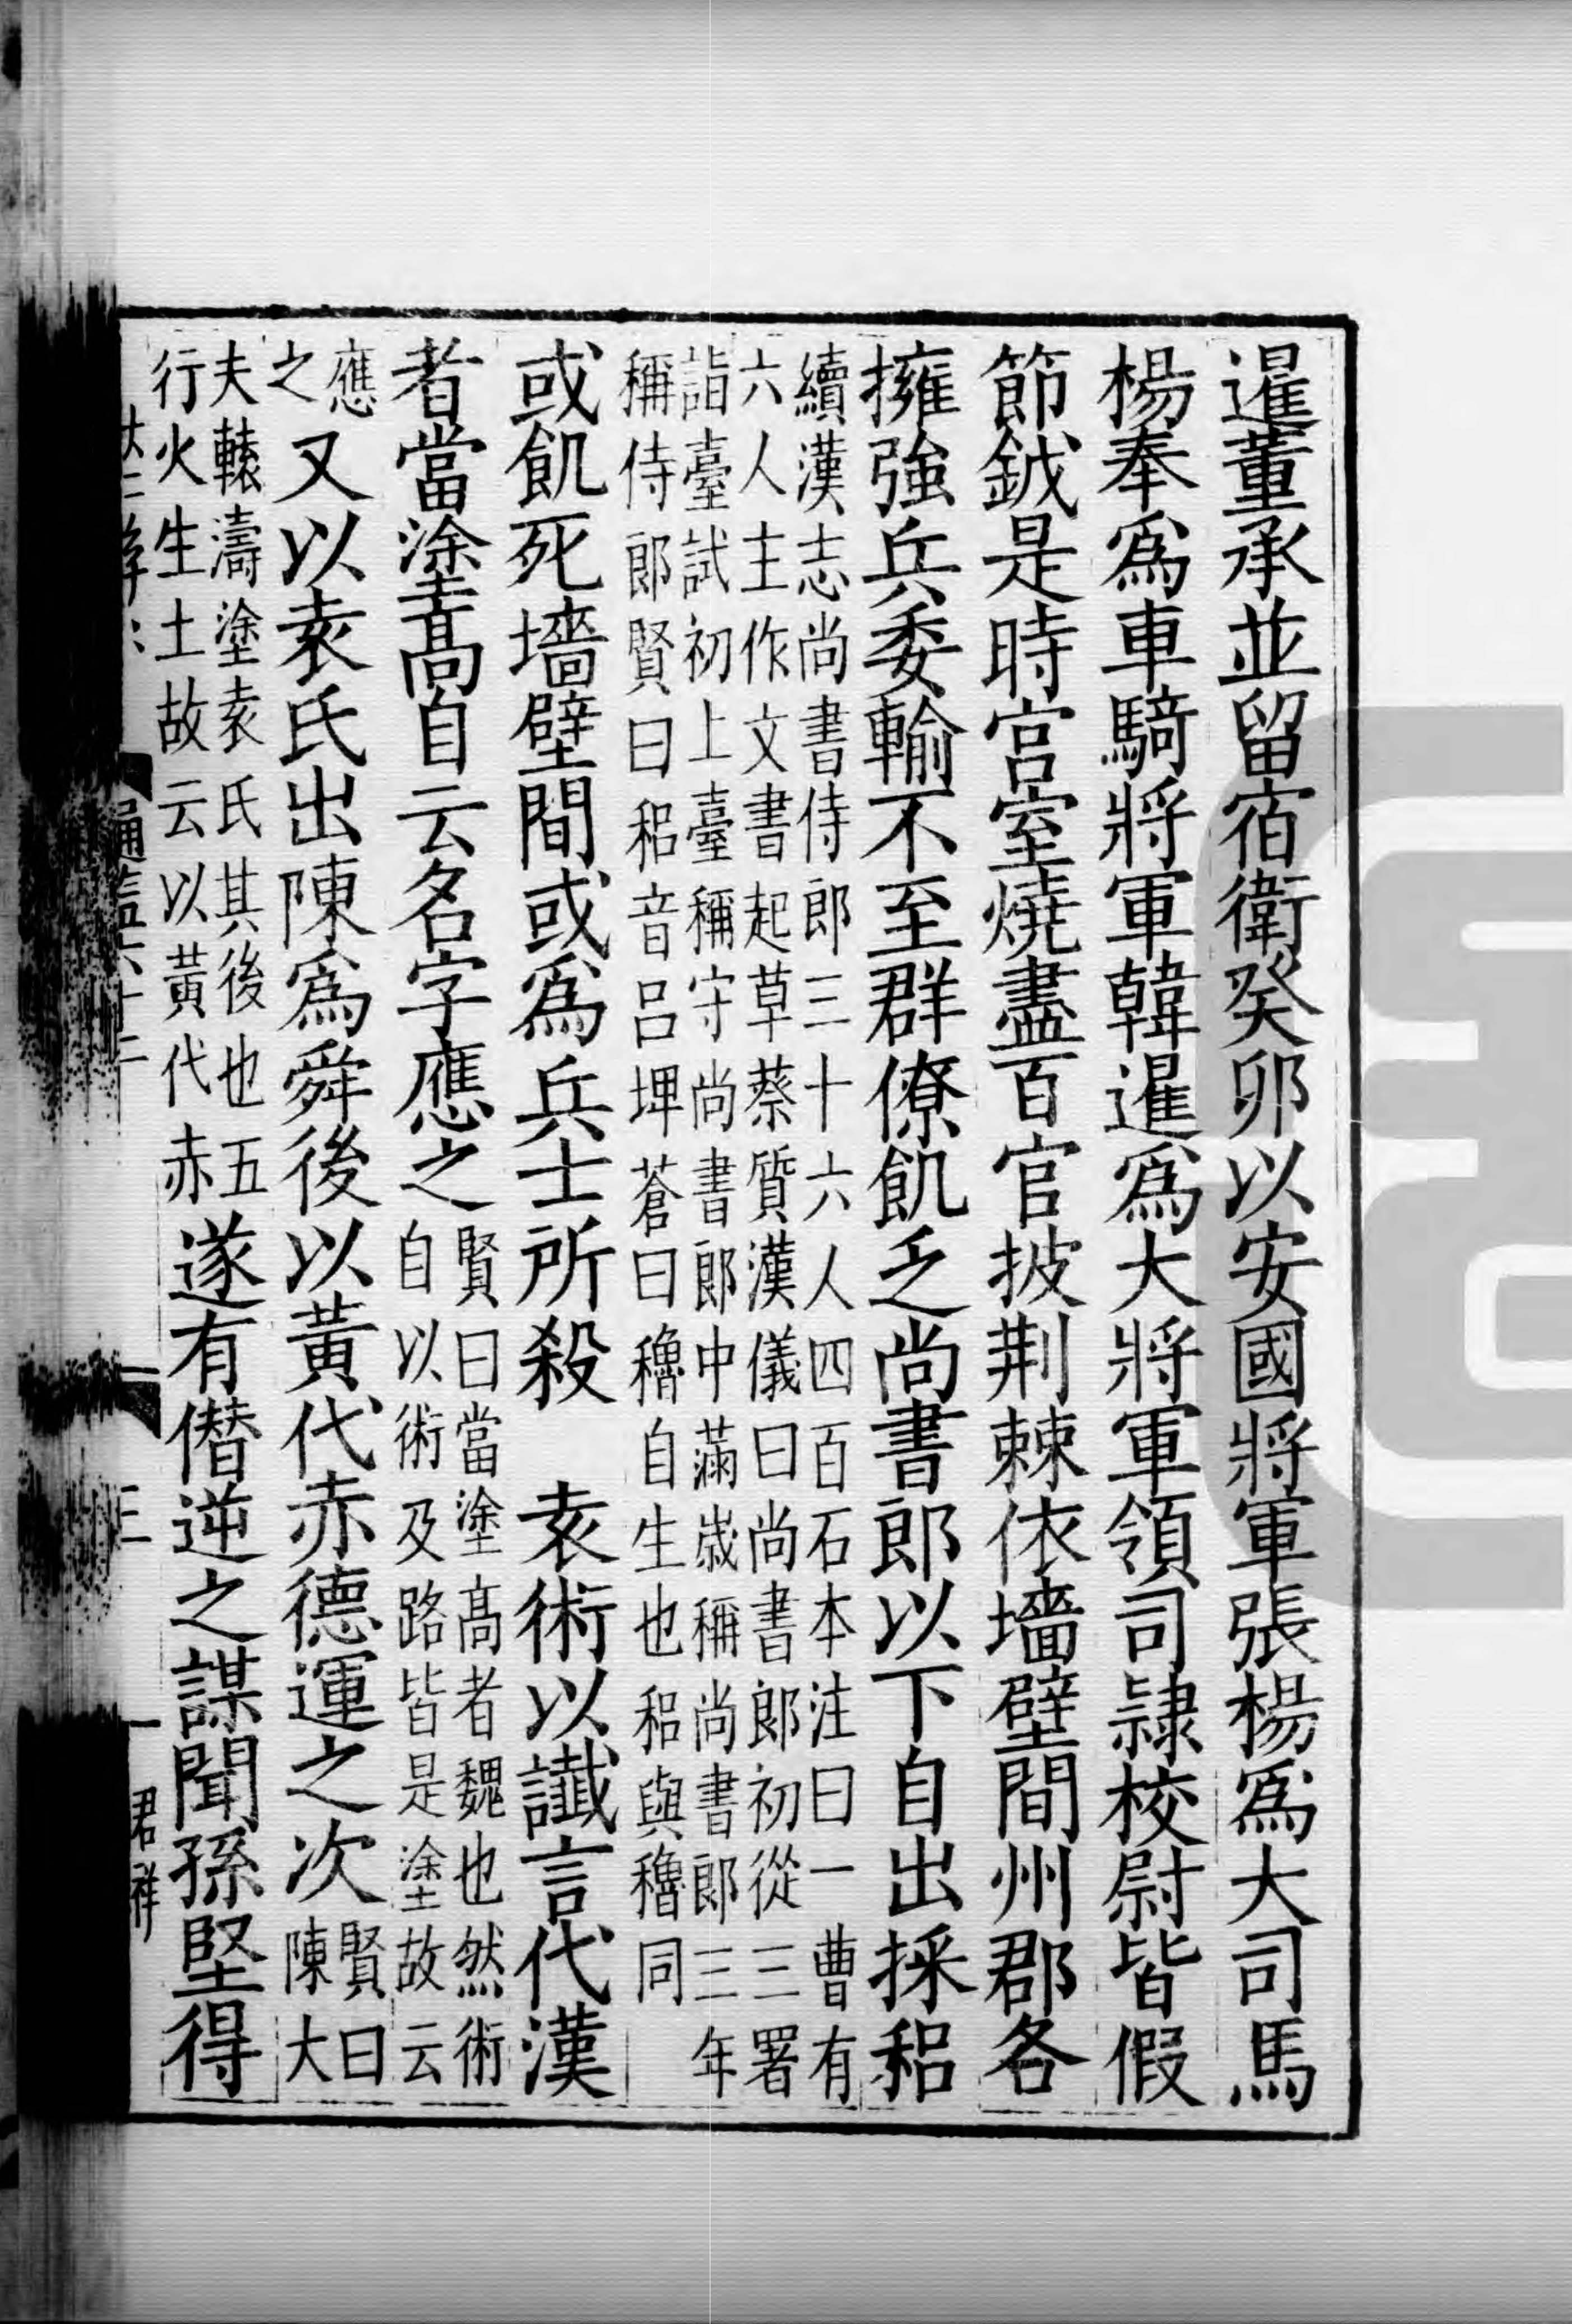 暹董承並留宿衛癸卯以安國將軍張楊爲大司馬
楊奉爲車騎將軍韓暹爲大將軍領司隷校尉皆假
節鉞是時宮室燒盡百官披荆棘依墻壁間州郡各
擁強兵委輸不至群僚飢乏尚書郎以下自出採稆
續漢志尚書侍郎三十六人四百石本注曰一曹有
六人主作文書起草蔡質漢儀曰尚書郎初從三署
詣臺試初上臺稱守尚書郎中滿歲稱尚書郎三年
稱侍郎賢曰稆音呂埤蒼曰穭自生也稆與穭同
或飢死墻壁間或爲兵士所殺　袁術以讖言代漢
者當塗高自云名字應之
賢曰當塗高者魏也然術
自以術及路皆是塗故云
應
之
又以袁氏出陳爲舜後以黃代赤德運之次
賢曰
陳大
夫轅濤塗袁氏其後也五
行火生土故云以黃代赤
遂有僭逆之謀聞孫堅得
通鑑六十二
三
君祥